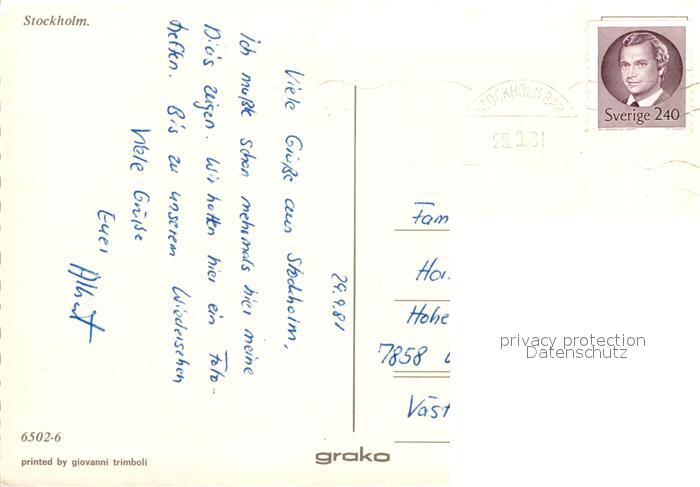 Stockholm.
29.9.81
Viele Grüße aus Stockholm,
ich mußte schon mehrmals hier meine
Dia's zeigen. Wir hatten hier ein Foto-
treffen. Bis zu unserem Wiedersehen
Viele Grüße
Euer
Albert
STOCKHOLM BAN
29.9.81
Sverige 240
Fam
Hohe
7858
Väst
privacy protection
Datenschutz
6502-6
printed by giovanni trimboli
grako